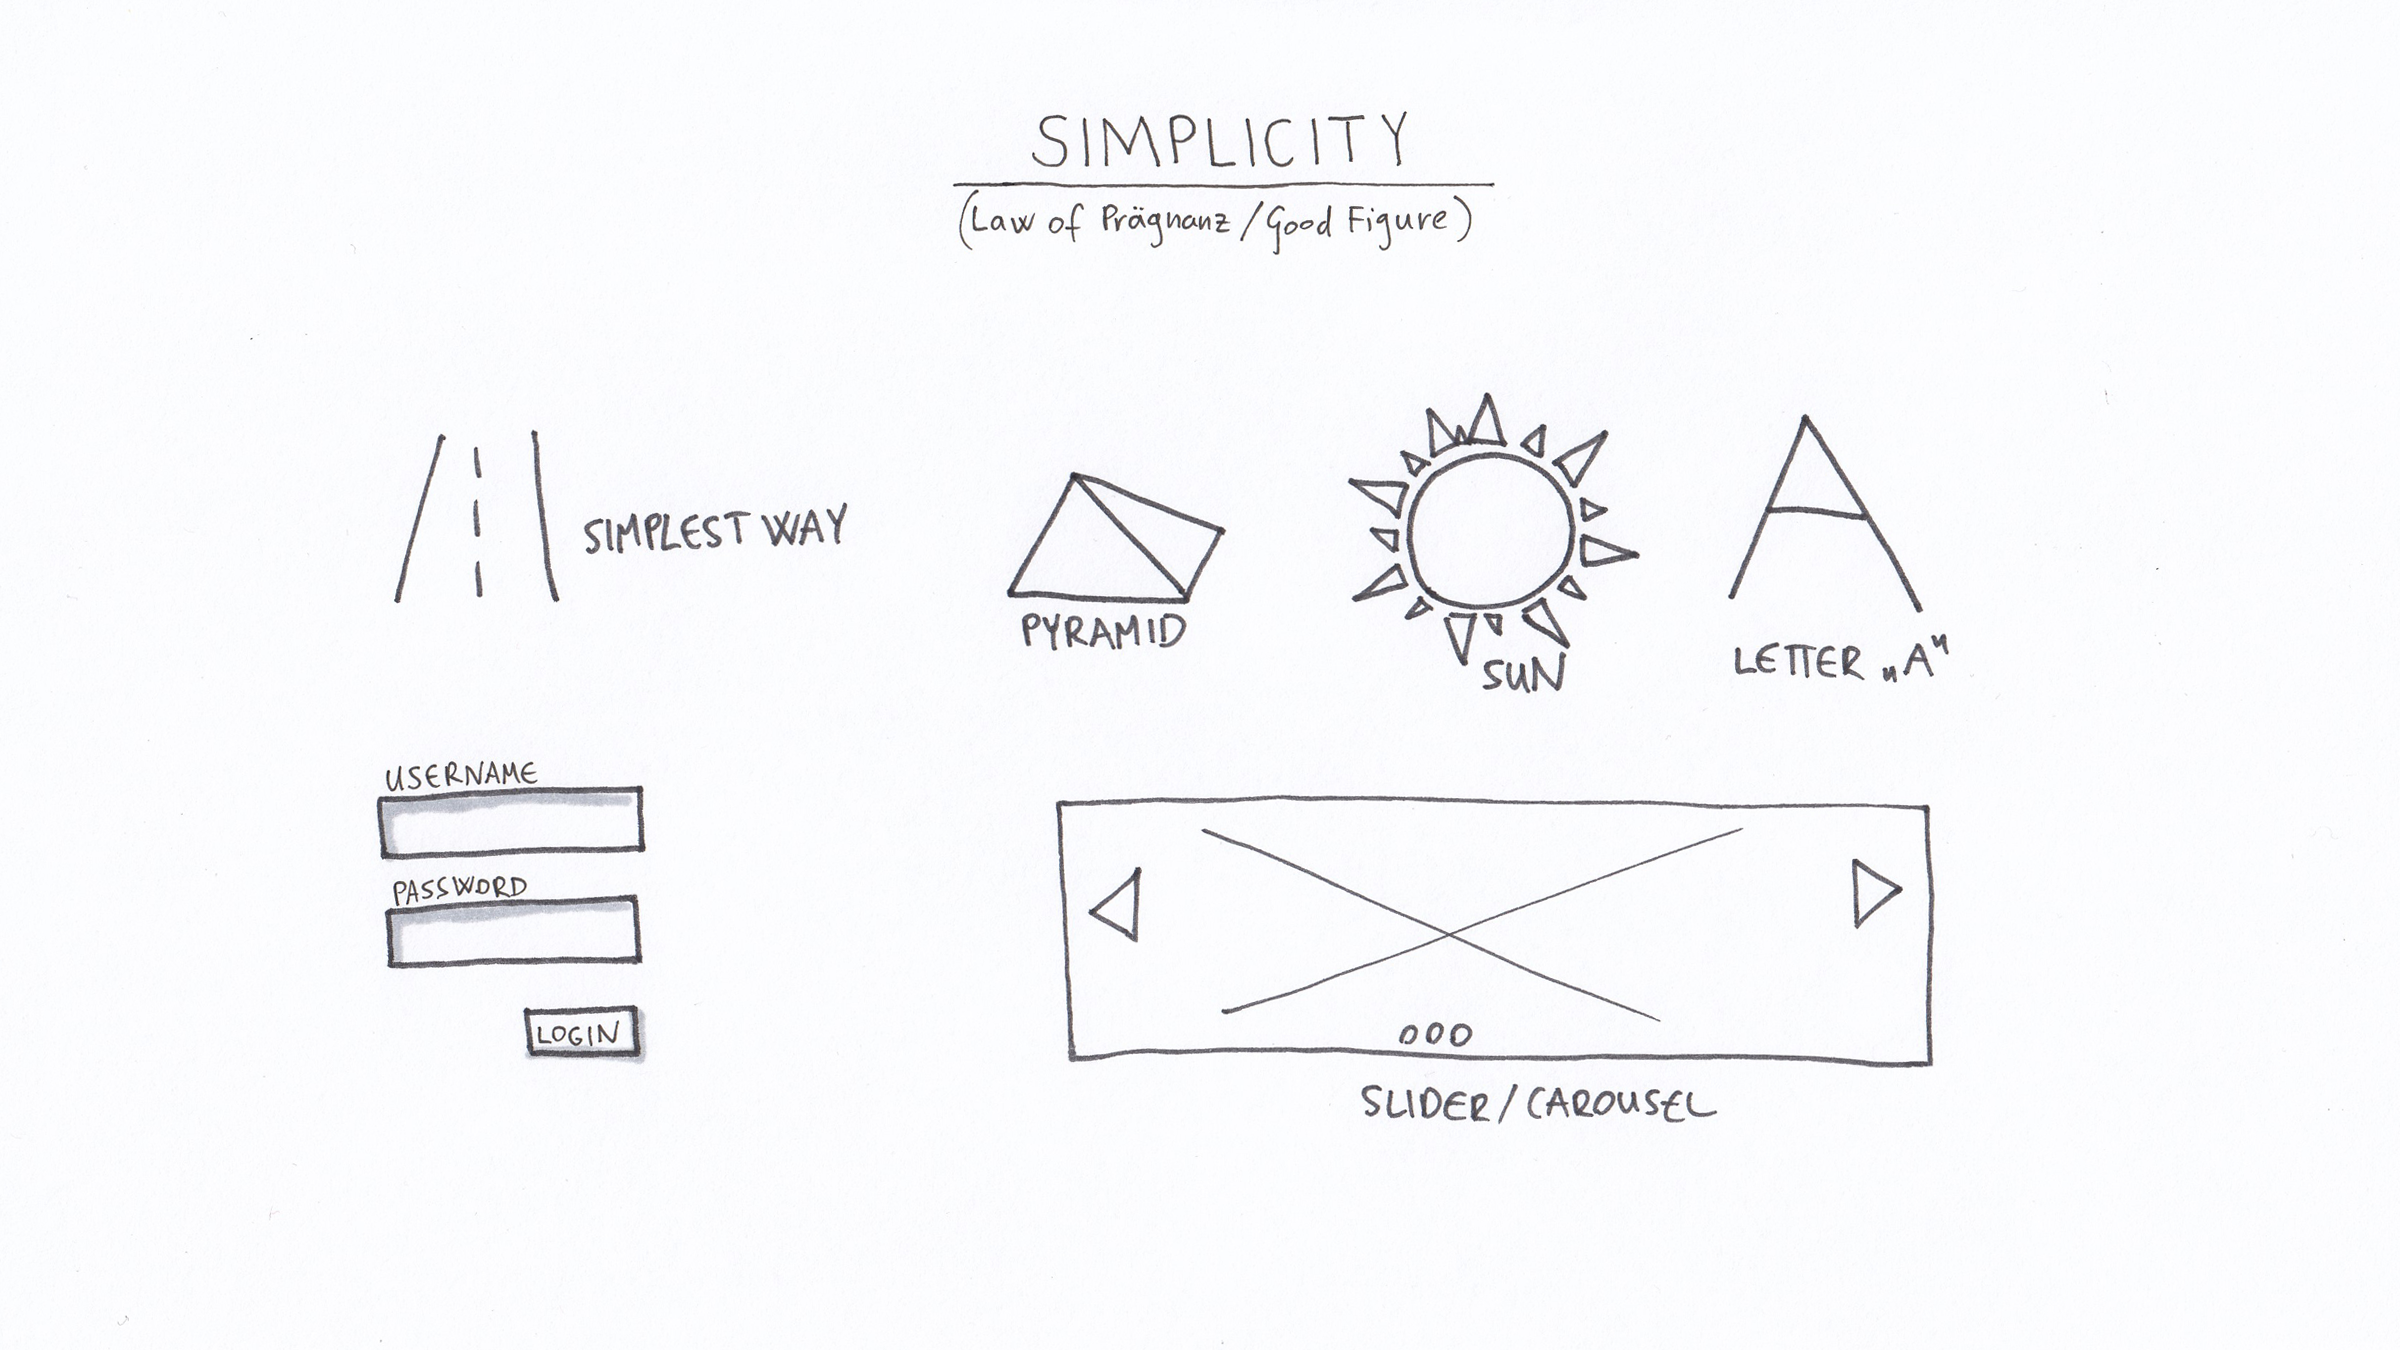 SIMPLICITY
(Law of Prägnanz / Good Figure)
SIMPLEST WAY
PYRAMID
SUN
LETTER „A"
USERNAME
PASSWORD
LOGIN
SLIDER / CAROUSEL